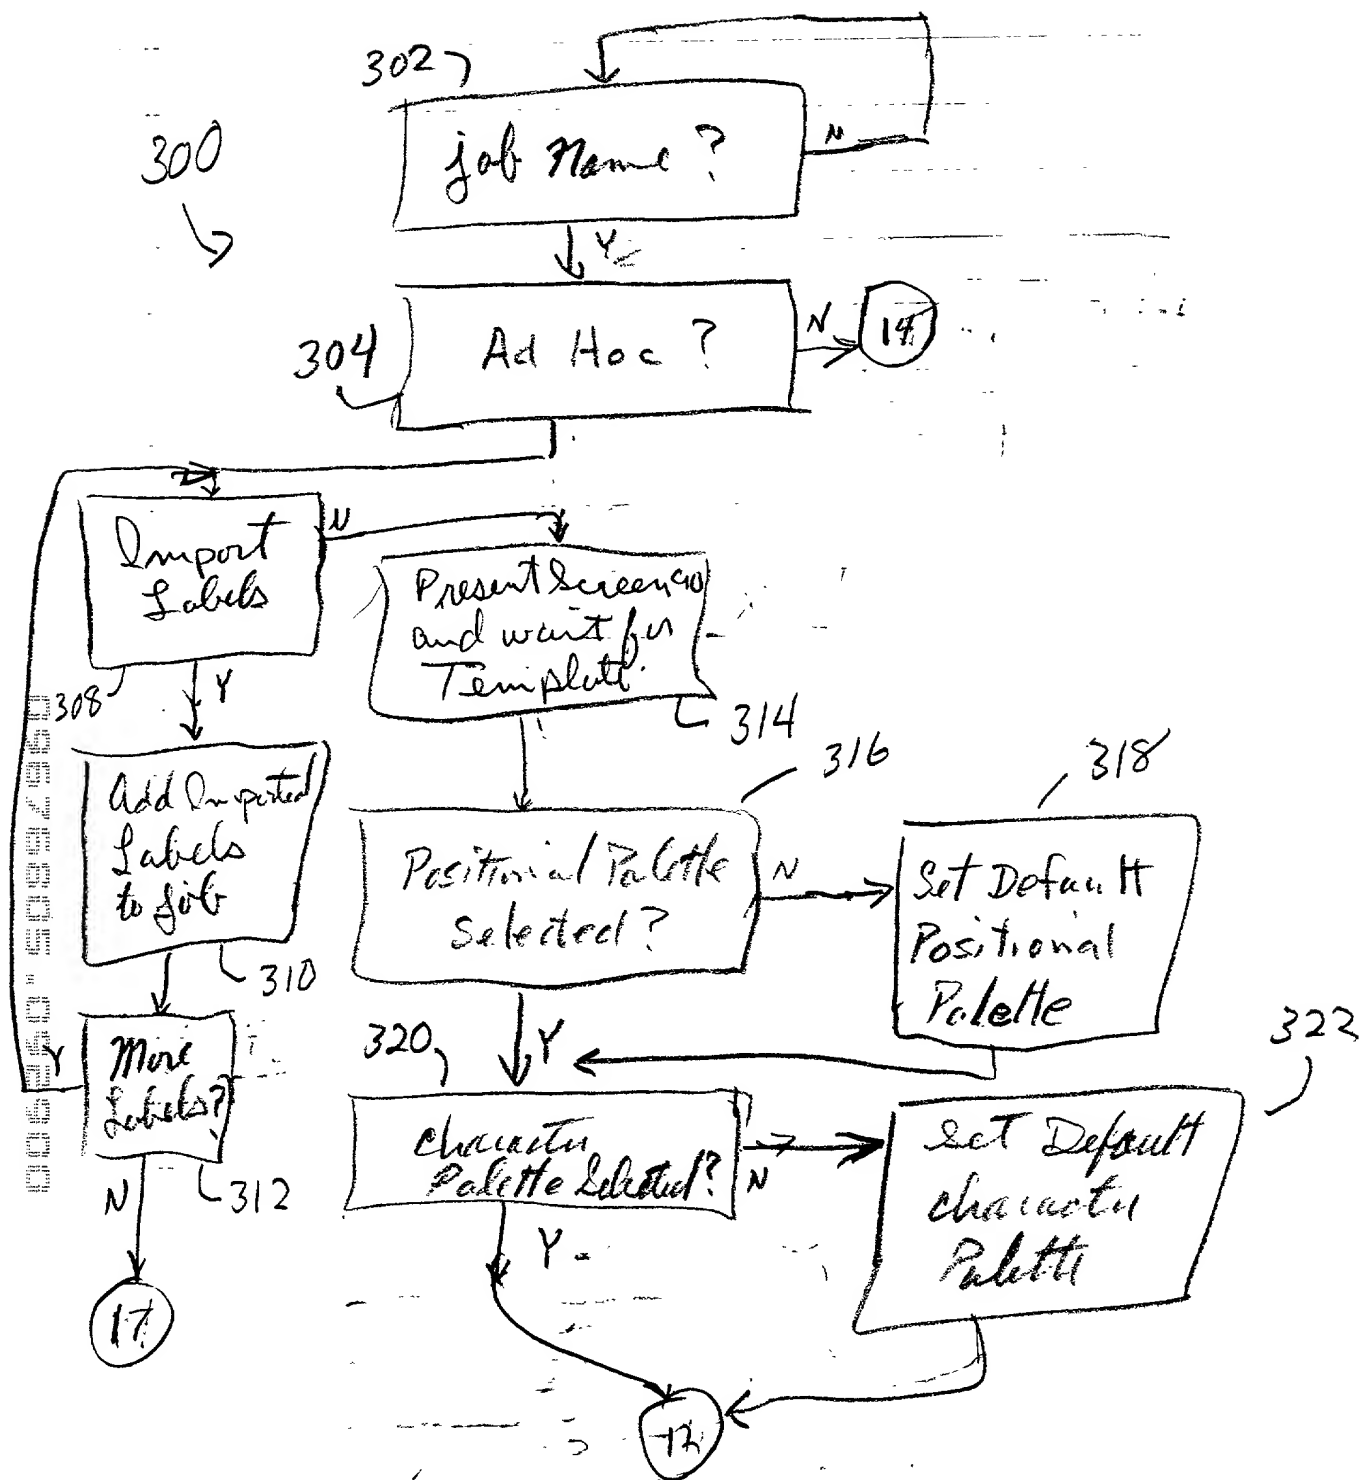 302
300
Job Name?
N
Y
304
Ad Hoc?
N
14
Import
Labels
N
308
Y
Present Screen 90
and wait for
Template
314
Add Imported
Labels
to Job
310
316
Positional Palette
Selected?
N
318
Set Default
Positional
Palette
Y
More
Labels?
Y
312
N
17
320
Character
Palette Selected?
N
322
Set Default
Character
Palette
Y
12